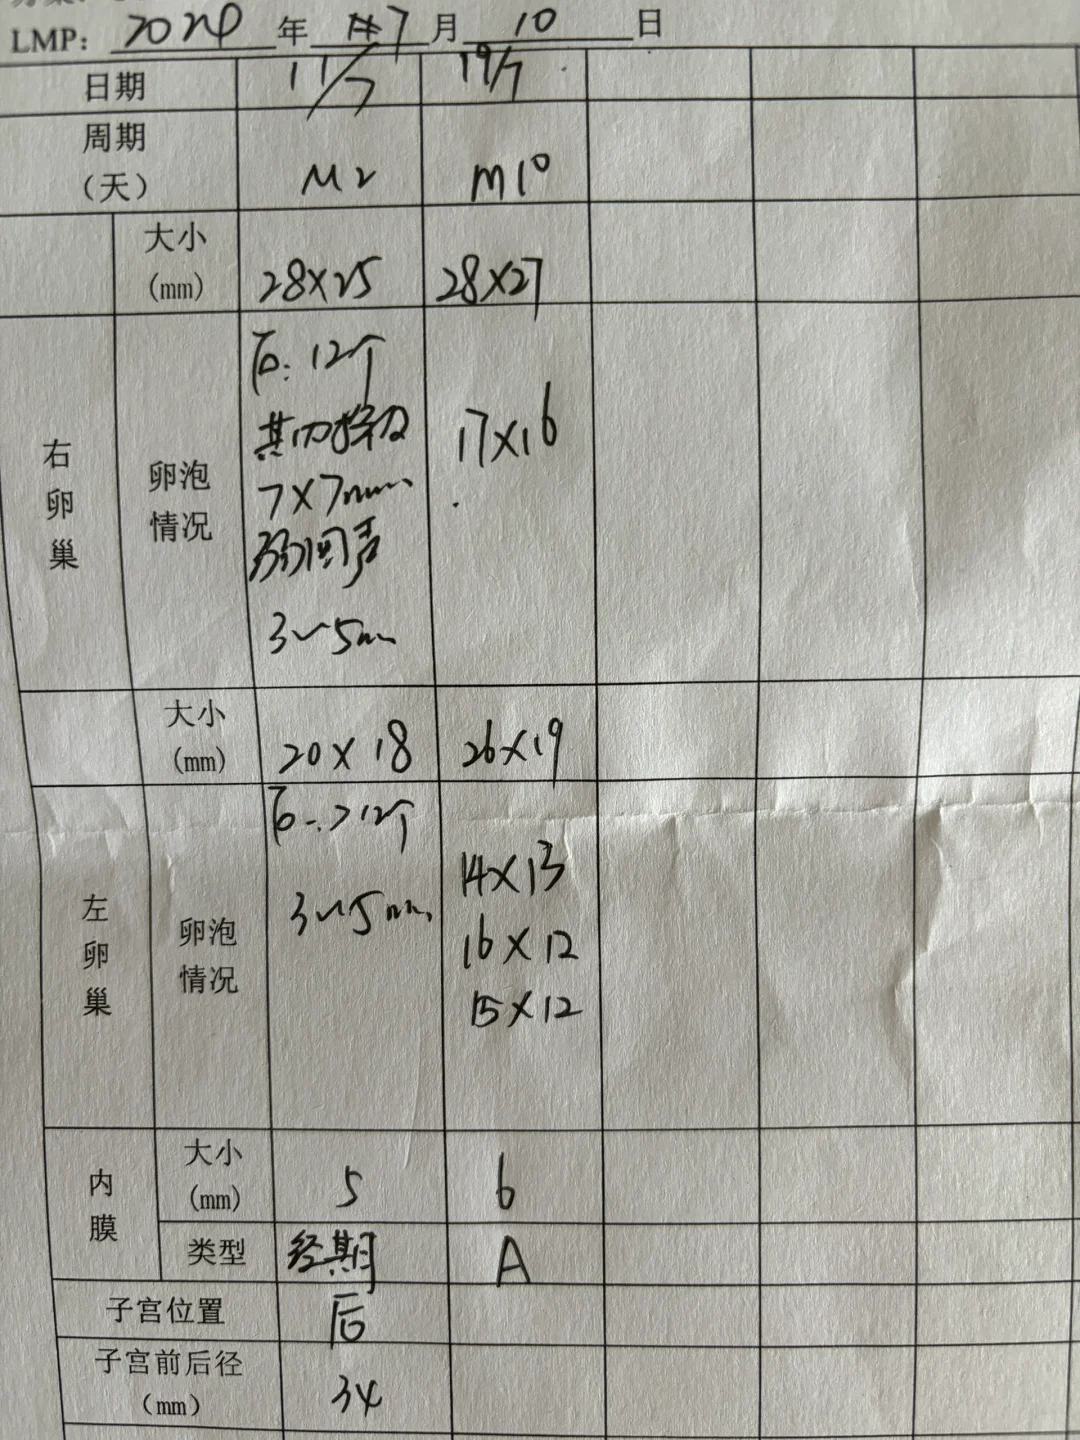 LMP: 2024 年 7 月 10 日
日期 11/7 19/7
周期
(天) M2 M10
大小
(mm) 28×25 28×27
右
卵
巢
卵泡
情况
12个
其内
7×7mm
弱回声
3~5mm
17×16
大小
(mm) 20×18 26×19
左
卵
巢
卵泡
情况
>12个
3~5mm
14×13
16×12
15×12
内
膜
大小
(mm) 5 6
类型 经期 A
子宫位置 后
子宫前后径
(mm) 34